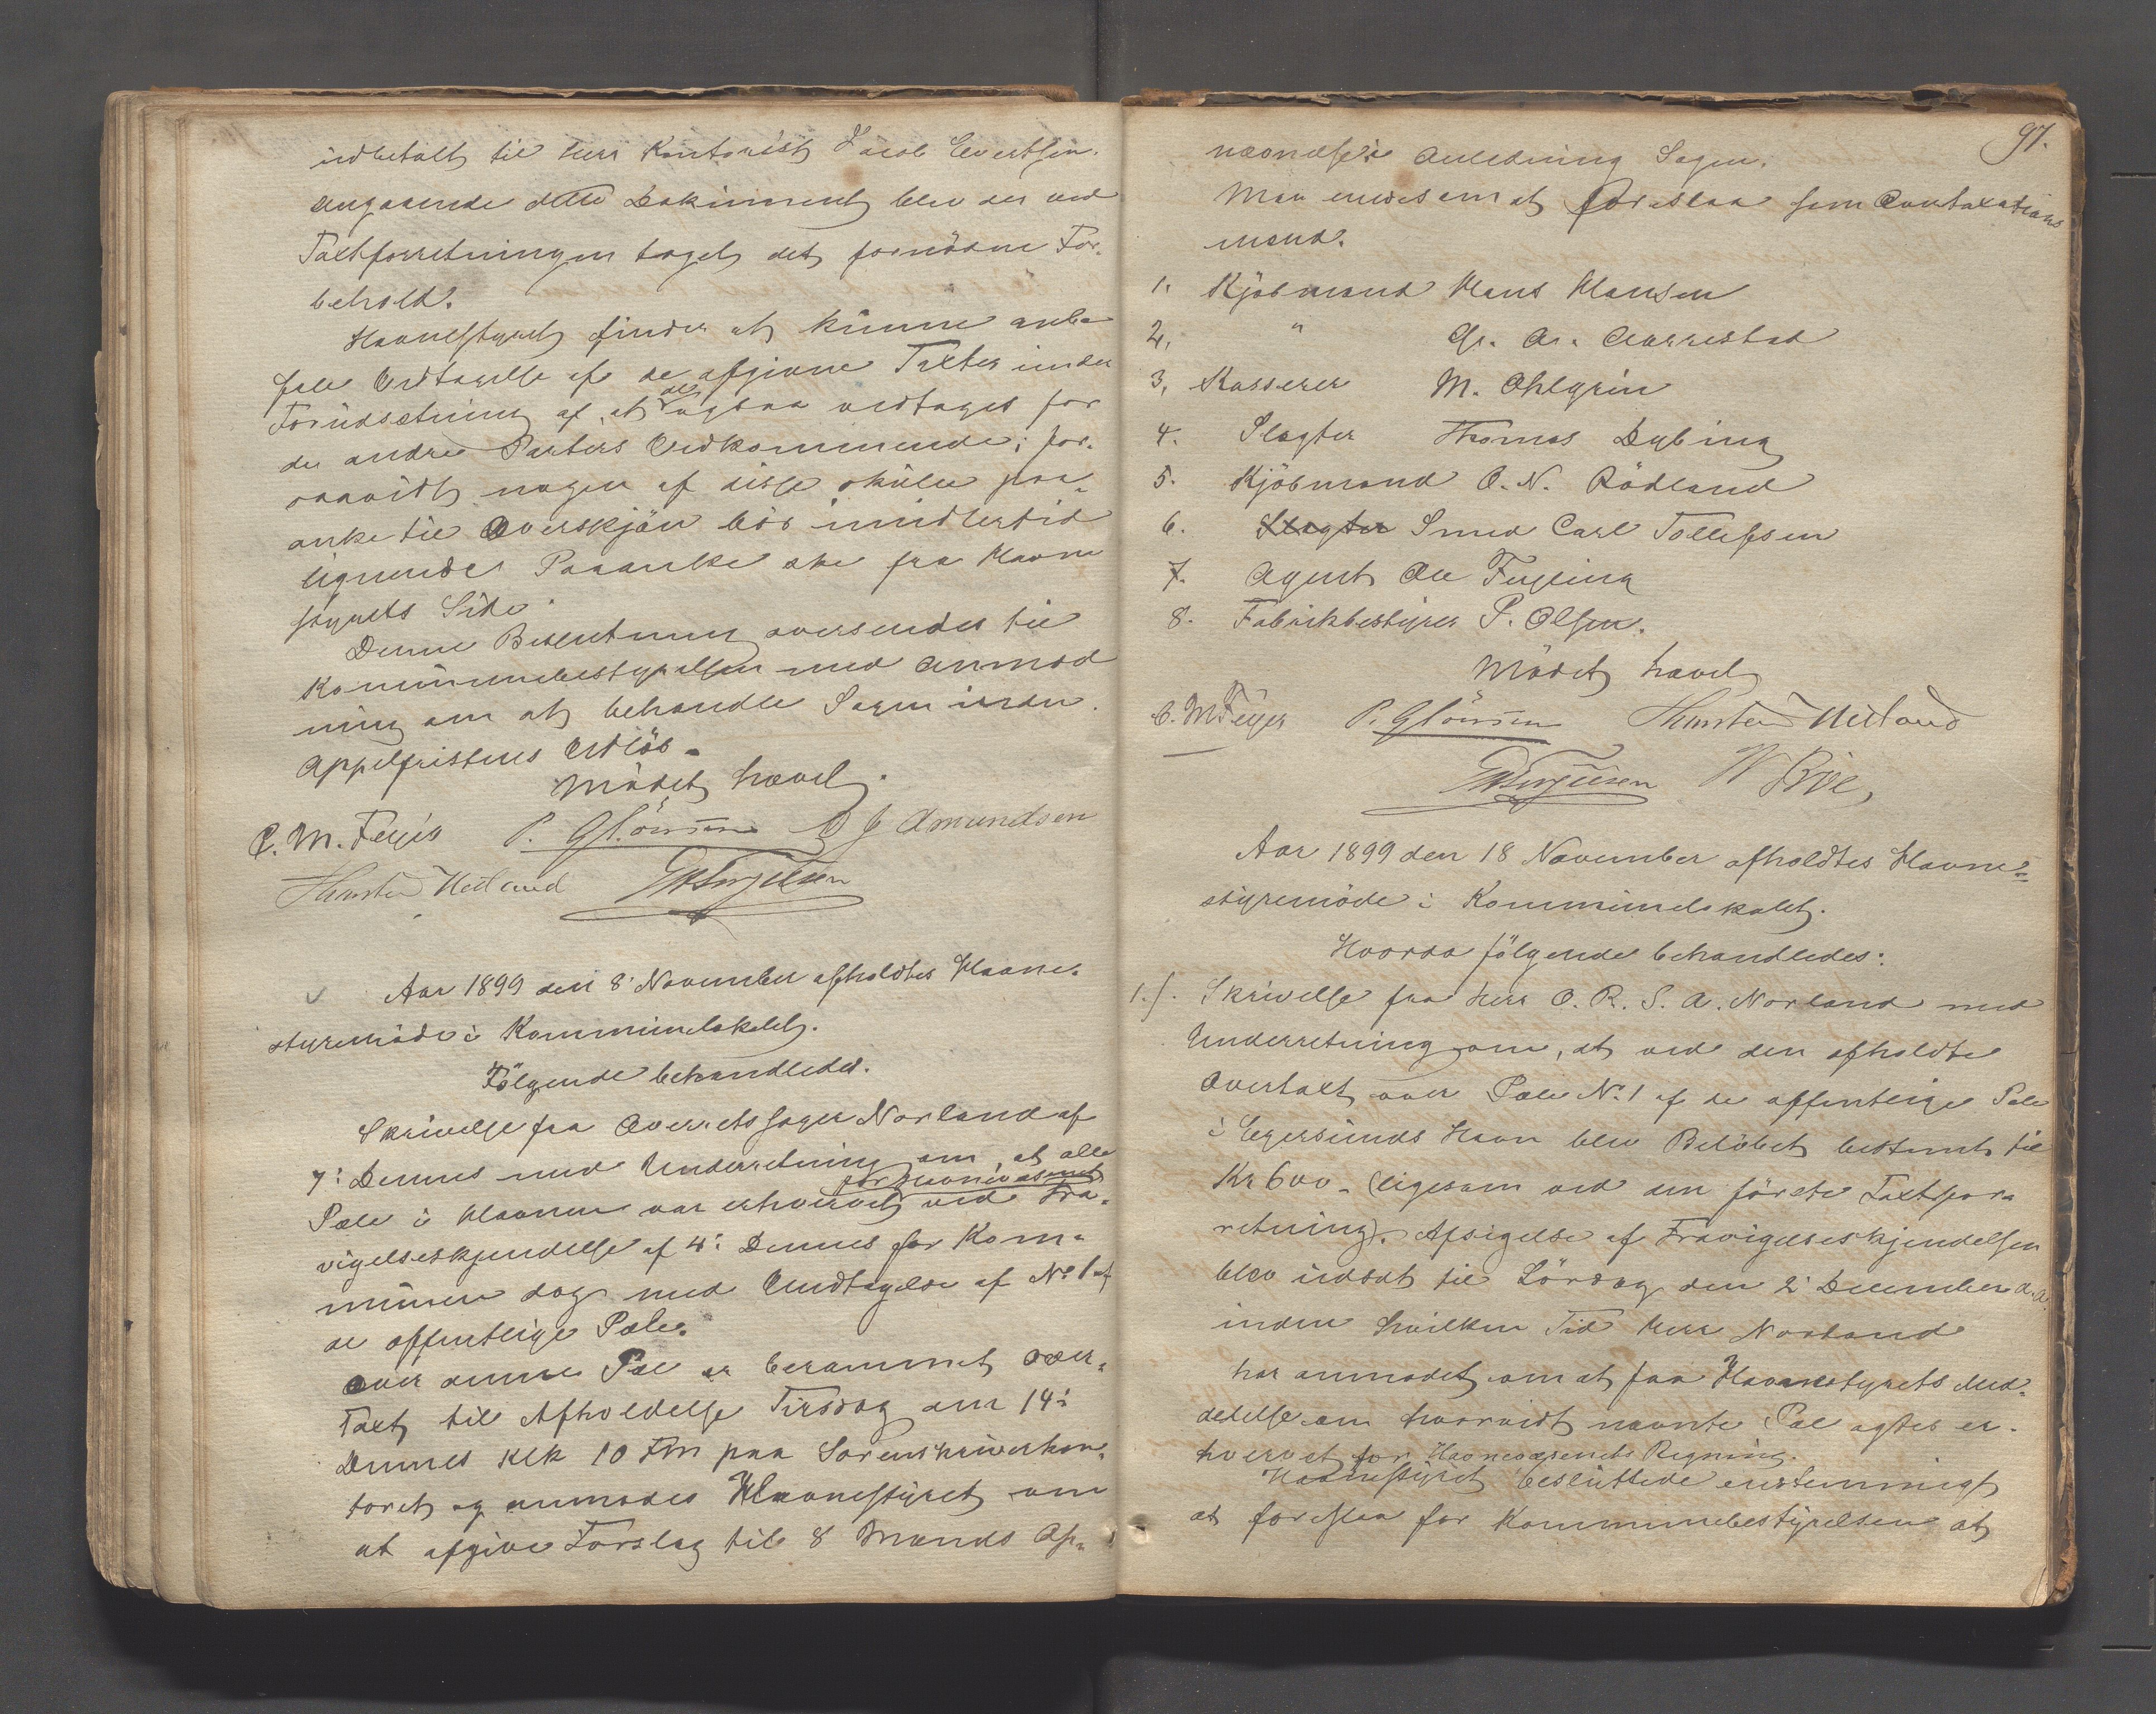 indbetalt til Herr Kontorist Jacob Evertsen.
angaaende dette Dokument blev der ved
Taxtforretningen taget det fornødne For-
behold.
Havnestyret finder at kunne anbe
fale Vedtagelse af de afgivne Taxter under
Forudsætning af, at de ogsaa vedtages for
de andre Parters Vedkommende; for-
saavidt nogen af disse skulle paa-
anke til Overskjøn bør imidlertid
lignende Paaanke ske fra Havne
styrets Side.
Denne Beslutning oversendes til
Kommunebestyrelsen med Anmod
ning om at behandle Sagen inden
Appelfristens Udløb.
Mødet hævet.
C. M. Feyer P. Glönsen J Amundsen
Thorsten Hetland
Aar 1899 den 8' November afholdtes Havne-
styremøde i Kommunelokalet.
Følgende behandledes.
Skrivelse fra Overretssagfører Norland af
7' Dennes med Underretning om, at alle
for Havnevæsenet
Pæle i Havnen var erhvervet ved Fra-
vigelseskjendelse af 4' Dennes for Kom-
munen dog med Undtagelse af No 1 af
de offentlige Pæle.
Over denne Pæl er berammet Over-
Taxt til Afholdelse Tirsdag den 14'
Dennes Klk 10 Fm paa Sorenskriverkon-
toret og anmodes Havnestyret om
at afgive Forslag til 8 Mænds Op-
97.
nævnelse i Anledning Sagen.
Man enedes om at foreslaa som Overtaxations
mænd.
1. Kjøbmand Hans Hansen
2. " Gr. Aarrestad
3. Kasserer M. Ohlgrin
4. Slagter Thomas Dybing
5. Kjøbmand O. N. Rødland
6. Slagter Smed Carl Tollefsen
7. Agent Ole Fugling
8. Fabrikbestyrer P. Olsen.
Mødet hævet
C. M Feyer P. Glönsen Thorsten Hetland
Aar 1899 den 18 November afholdtes Havne-
styremøde i Kommunelokalet.
Hvorpaa følgende behandledes:
1.). Skrivelse fra Herr O. R. S. A. Norland med
Underretning om, at ved den afholdte
Overtaxt over Pæle No 1 af de offentlige Pæle
i Egersunds Havn blev Beløbet bestemt til
Kr 600 - (ligesom ved den første Taxtfor-
retning). Afsigelse af Fravigelseskjendelsen
blev udsat til Lørdag den 2' December d. a.
inden hvilken Tid Herr Norland
har anmodet om at faa Havnestyrets Med-
delelse om hvorvidt nævnte Pæl agtes er-
hvervet for Havnevæsenets Regning.
Havnestyret besluttede enstemmigt
at foreslaa for Kommunebestyrelsen at